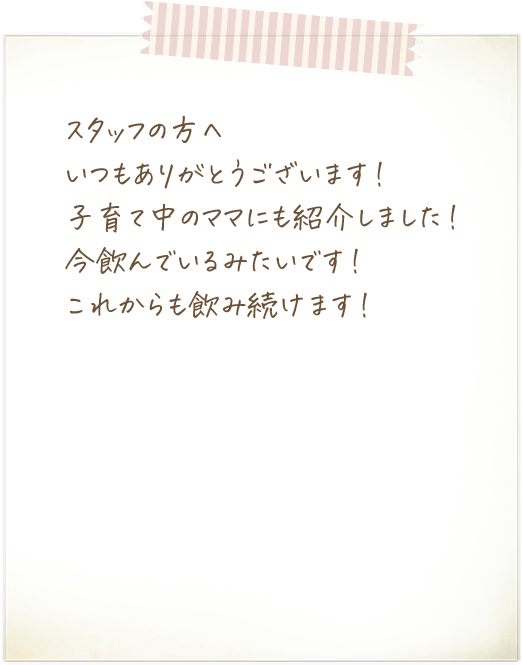 スタッフの方へ
いつもありがとうございます！
子育て中のママにも紹介しました！
今飲んでいるみたいです！
これからも飲み続けます！